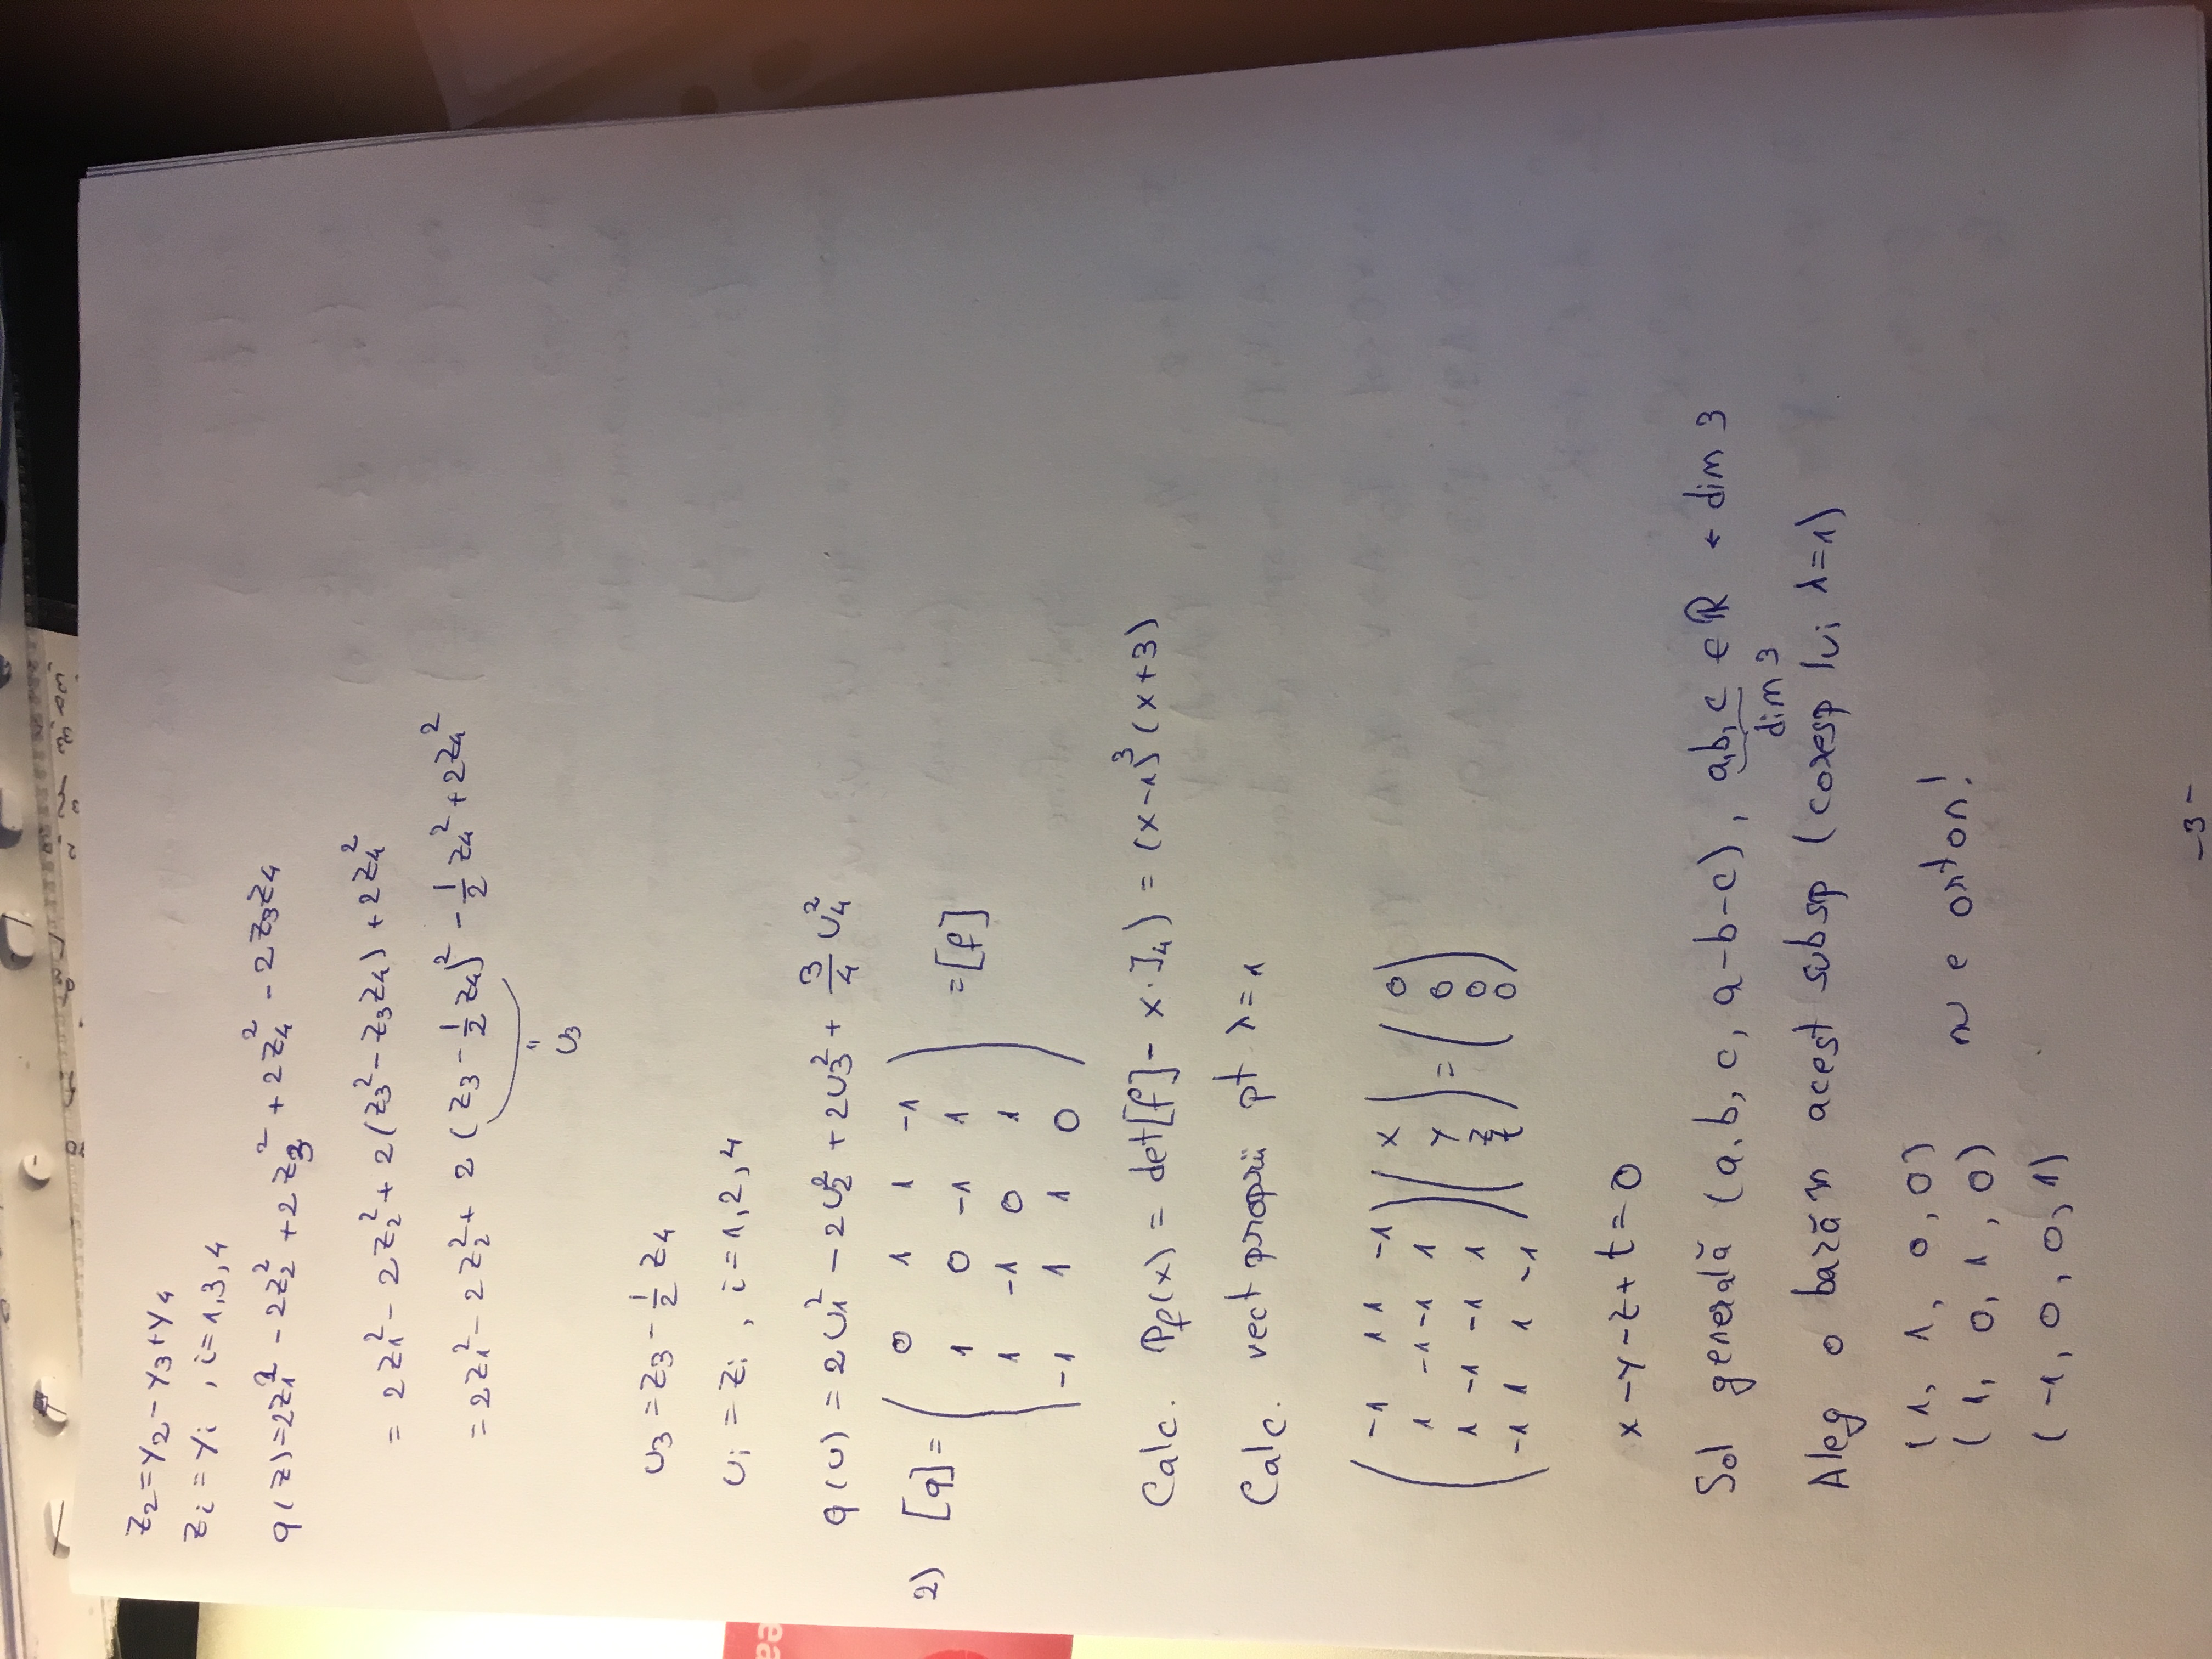 z₂ = y₂ - y₃ + y₄
zᵢ = yᵢ , i = 1,3,4
q(z) = 2z₁² - 2z₂² + 2z₃² + 2z₄² - 2z₃z₄
= 2z₁² - 2z₂² + 2(z₃² - z₃z₄) + 2z₄²
= 2z₁² - 2z₂² + 2(z₃ - 1/2 z₄)² - 1/2 z₄² + 2z₄²
"
u₃
u₃ = z₃ - 1/2 z₄
uᵢ = zᵢ , i = 1,2,4
q(u) = 2u₁² - 2u₂² + 2u₃² + 3/4 u₄²
2) [q] = ( 0 1 1 -1
1 0 -1 1
1 -1 0 1
-1 1 1 0 ) = [f]
Calc. Pf(x) = det[f] - x·I₄) = (x-1)³(x+3)
Calc. vect proprii pt λ=1
( -1 1 1 -1 ) ( x ) = ( 0 )
( 1 -1 -1 1 ) ( y ) ( 0 )
( 1 -1 -1 1 ) ( z ) ( 0 )
( -1 1 1 -1 ) ( t ) ( 0 )
x - y - z + t = 0
Sol generală (a, b, c, a-b-c), a,b,c ∈ ℝ ← dim 3
dim 3
Aleg o bază în acest subsp (coresp lui λ=1)
(1, 1, 0, 0)
(1, 0, 1, 0) nu e orton!
(-1, 0, 0, 1)
-3-